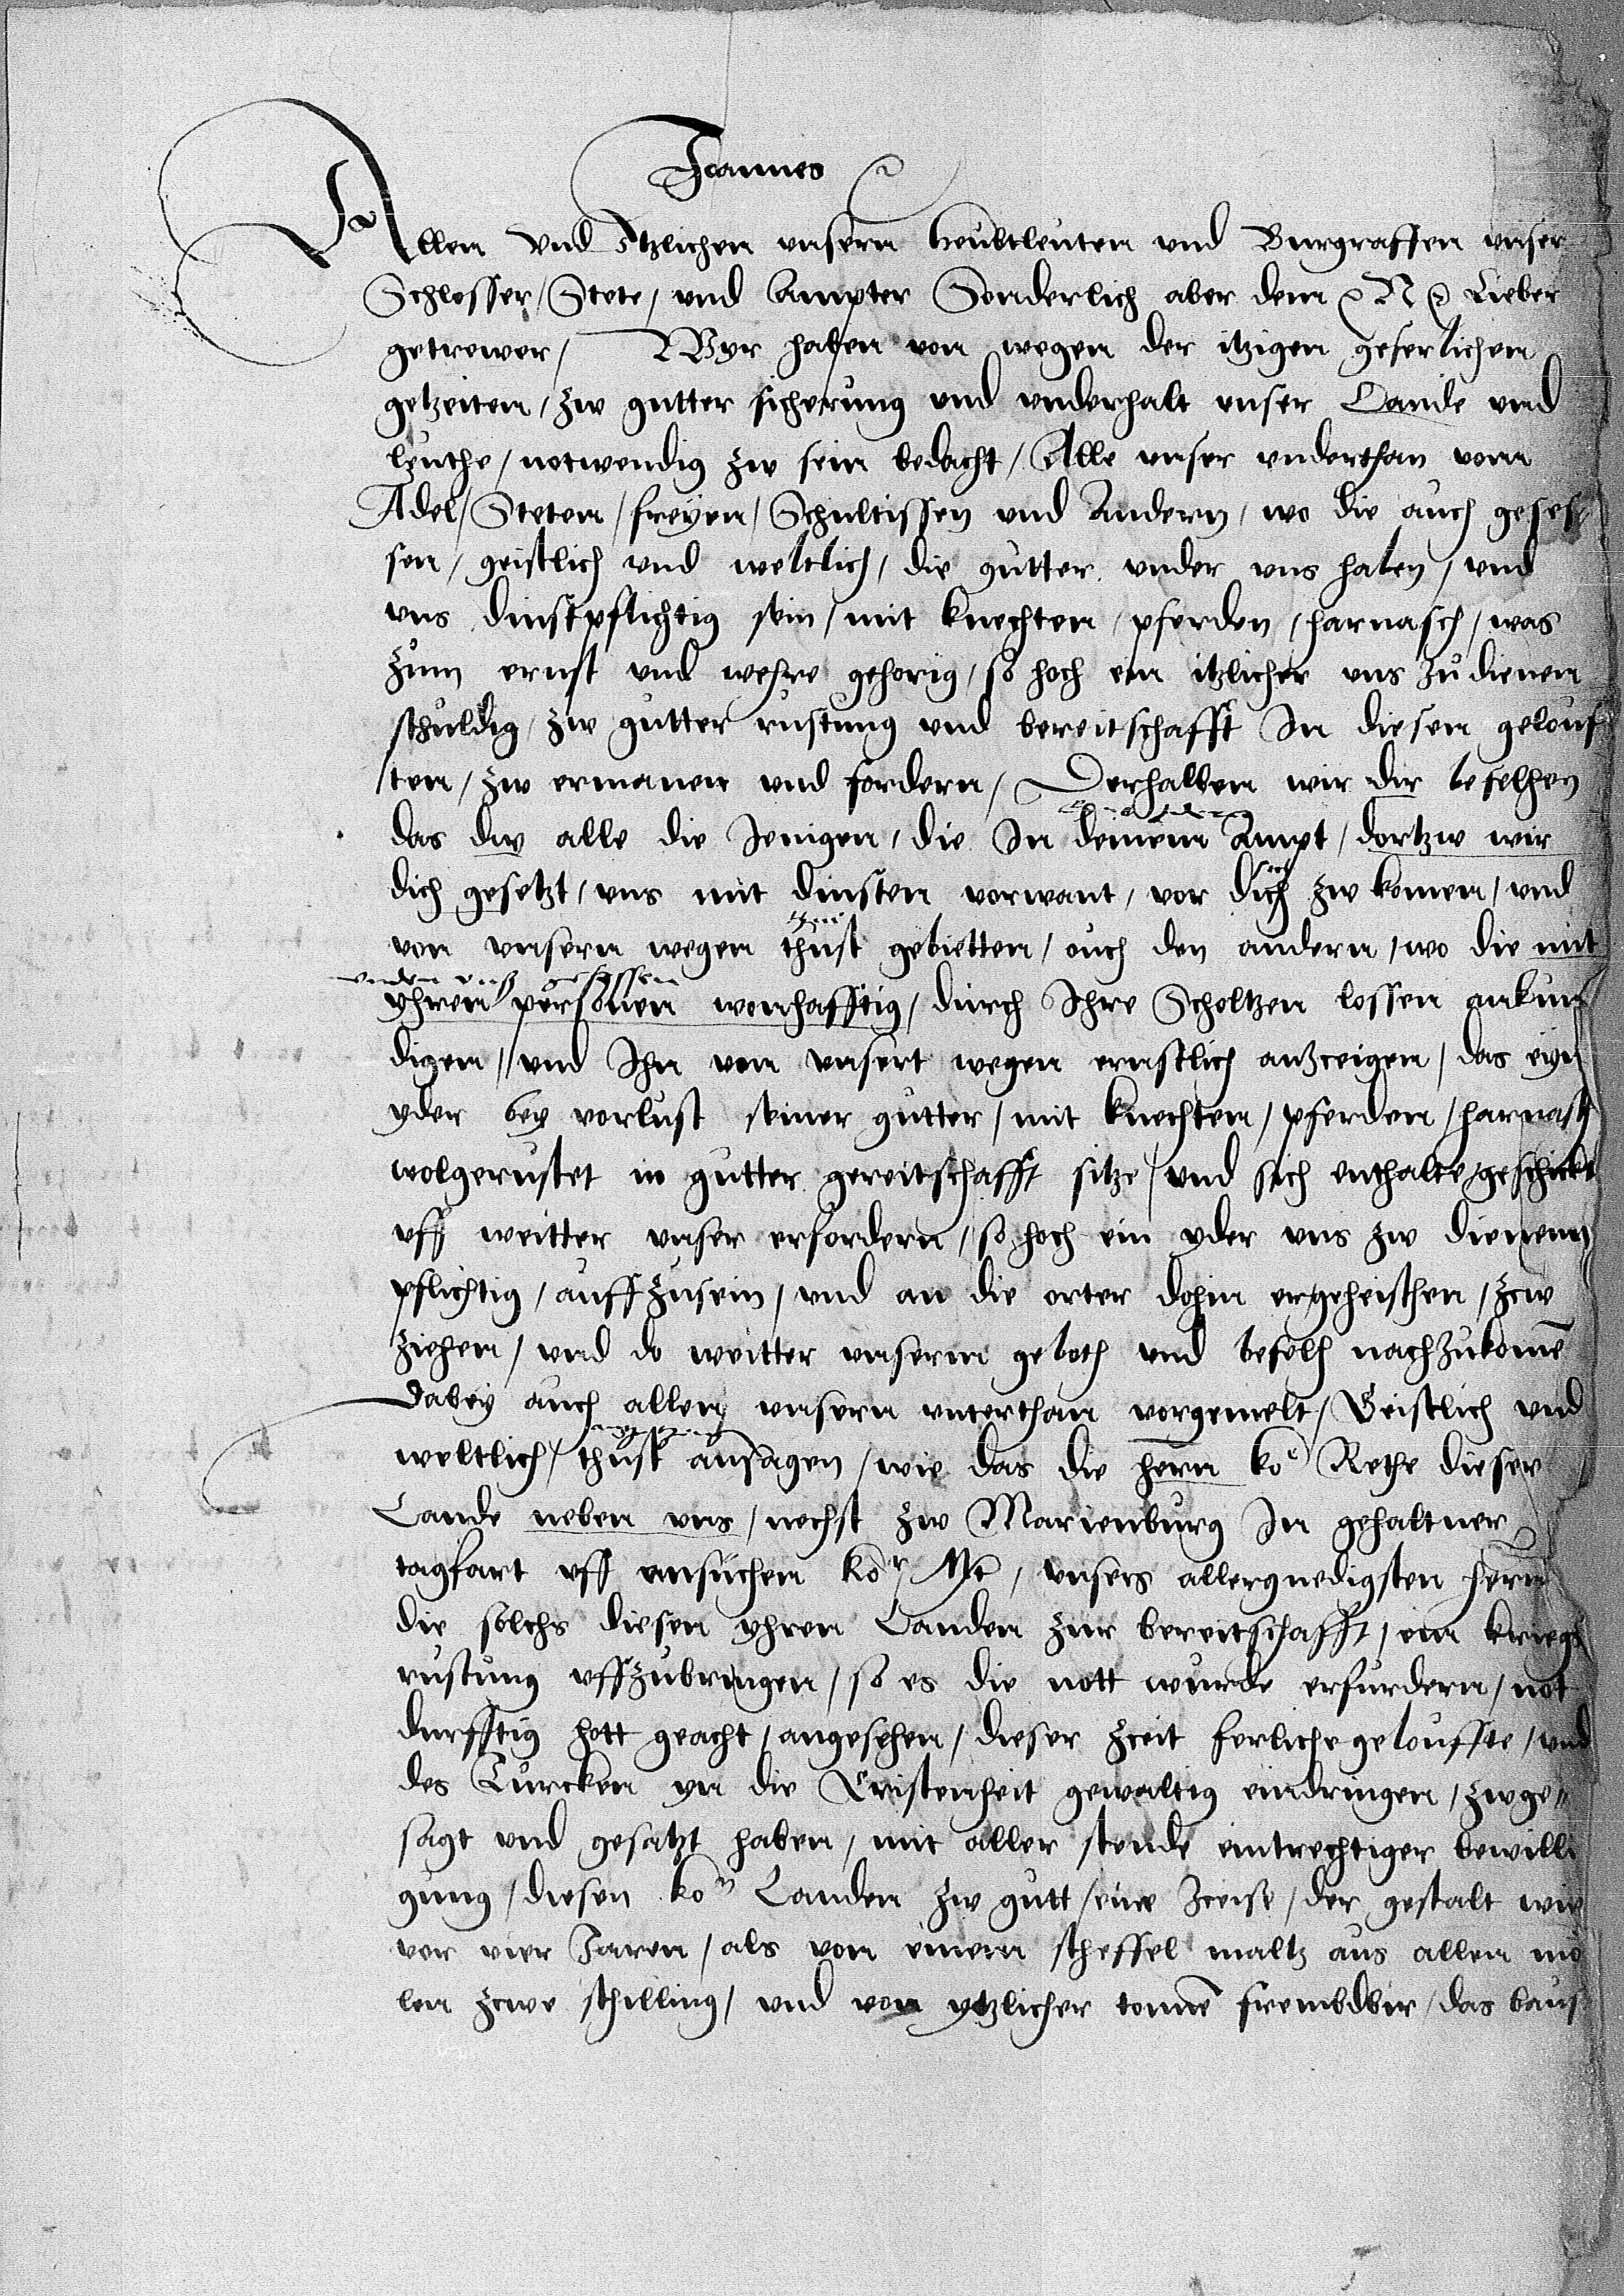 Joannes
Allen und Itzlichen unsern heubtleuten und Burgraffen unser
Schlosser / Stete / und Ampter Sonderlich aber dem N Lieber
getrewer / Wyr haben von wegen der itzigen geferlichen
getzeiten / zw gutter sicherung und underhalt unser Lande und
leuthe / notwendig zw sein bedacht / Alle unser underthan vom
Adel / Steten / freyen / Schultissen und Andern / wo die auch geses
sen / geistlich und weltlich / die gutter under uns haben / und
uns dinstpflichtig sein / mit knechten / pferden / harnasch / was
zum ernst und wehre gehorig / so hoch ein itzlicher uns zu dienen
schuldig / zw gutter rustung und bereitschafft In diesen geloufs
ten / zw ermanen und fordern / Derhalben wir dir befelhen
das dw alle die Jenigen / die In deinem Ampt / dortzw wir
dich gesetzt / uns mit dinsten vorwant / vor dich zw komen / und
von unsern wegen thust gebietten / ouch den andern / wo die mit
under uns gesessen
yhren personen wonhafftig / durch Ihre Scholtzen lossen ankun
digen // und Ihn von unsert wegen ernstlich anzceigen / das eyn
yder bey vorlust seiner gutter / mit knechten / pferden / harnasch
wolgerustet in gutter gereitschafft sitze / und sich enthalte geschickt
uff weitter unser erfordern / so hoch ein yder uns zw dienenn
pflichtig / auffzusein / und an die orter dohin ergeheischen / zcw
ziehen / und do weitter unserm geboth und befelh nachzukome
Dabey auch allen unsern unterthan vorgemelt / Geistlich und
weltlich / thust ansagen / wie das die hern ko Rethe dieser
Lande neben uns / nechst zw Marienburg In gehaltner
tagfart uff ansuchen kor Mt / unsers allergnedigsten hern
die solchs diesen yhren Landen zur bereitschafft / ein kriegs
rustung uffzubringen / so es die nott wurde erfurdern / not
durfftig hott geacht / angesehen / dieser zceit ferliche geloufften / und
des Turcken yn die Cristenheit gewaltig eindringen / zwge//
sagt und gesatzt haben / mit aller stende eintrechtiger bewilli
gung / diesen kon Landen zw gutt / eine Zceise / der gestalt wie
vor vier Jaren / als von einem scheffel maltz aus allen mo
len zcwe schilling / und von ytzlicher tonne frembdbir / das